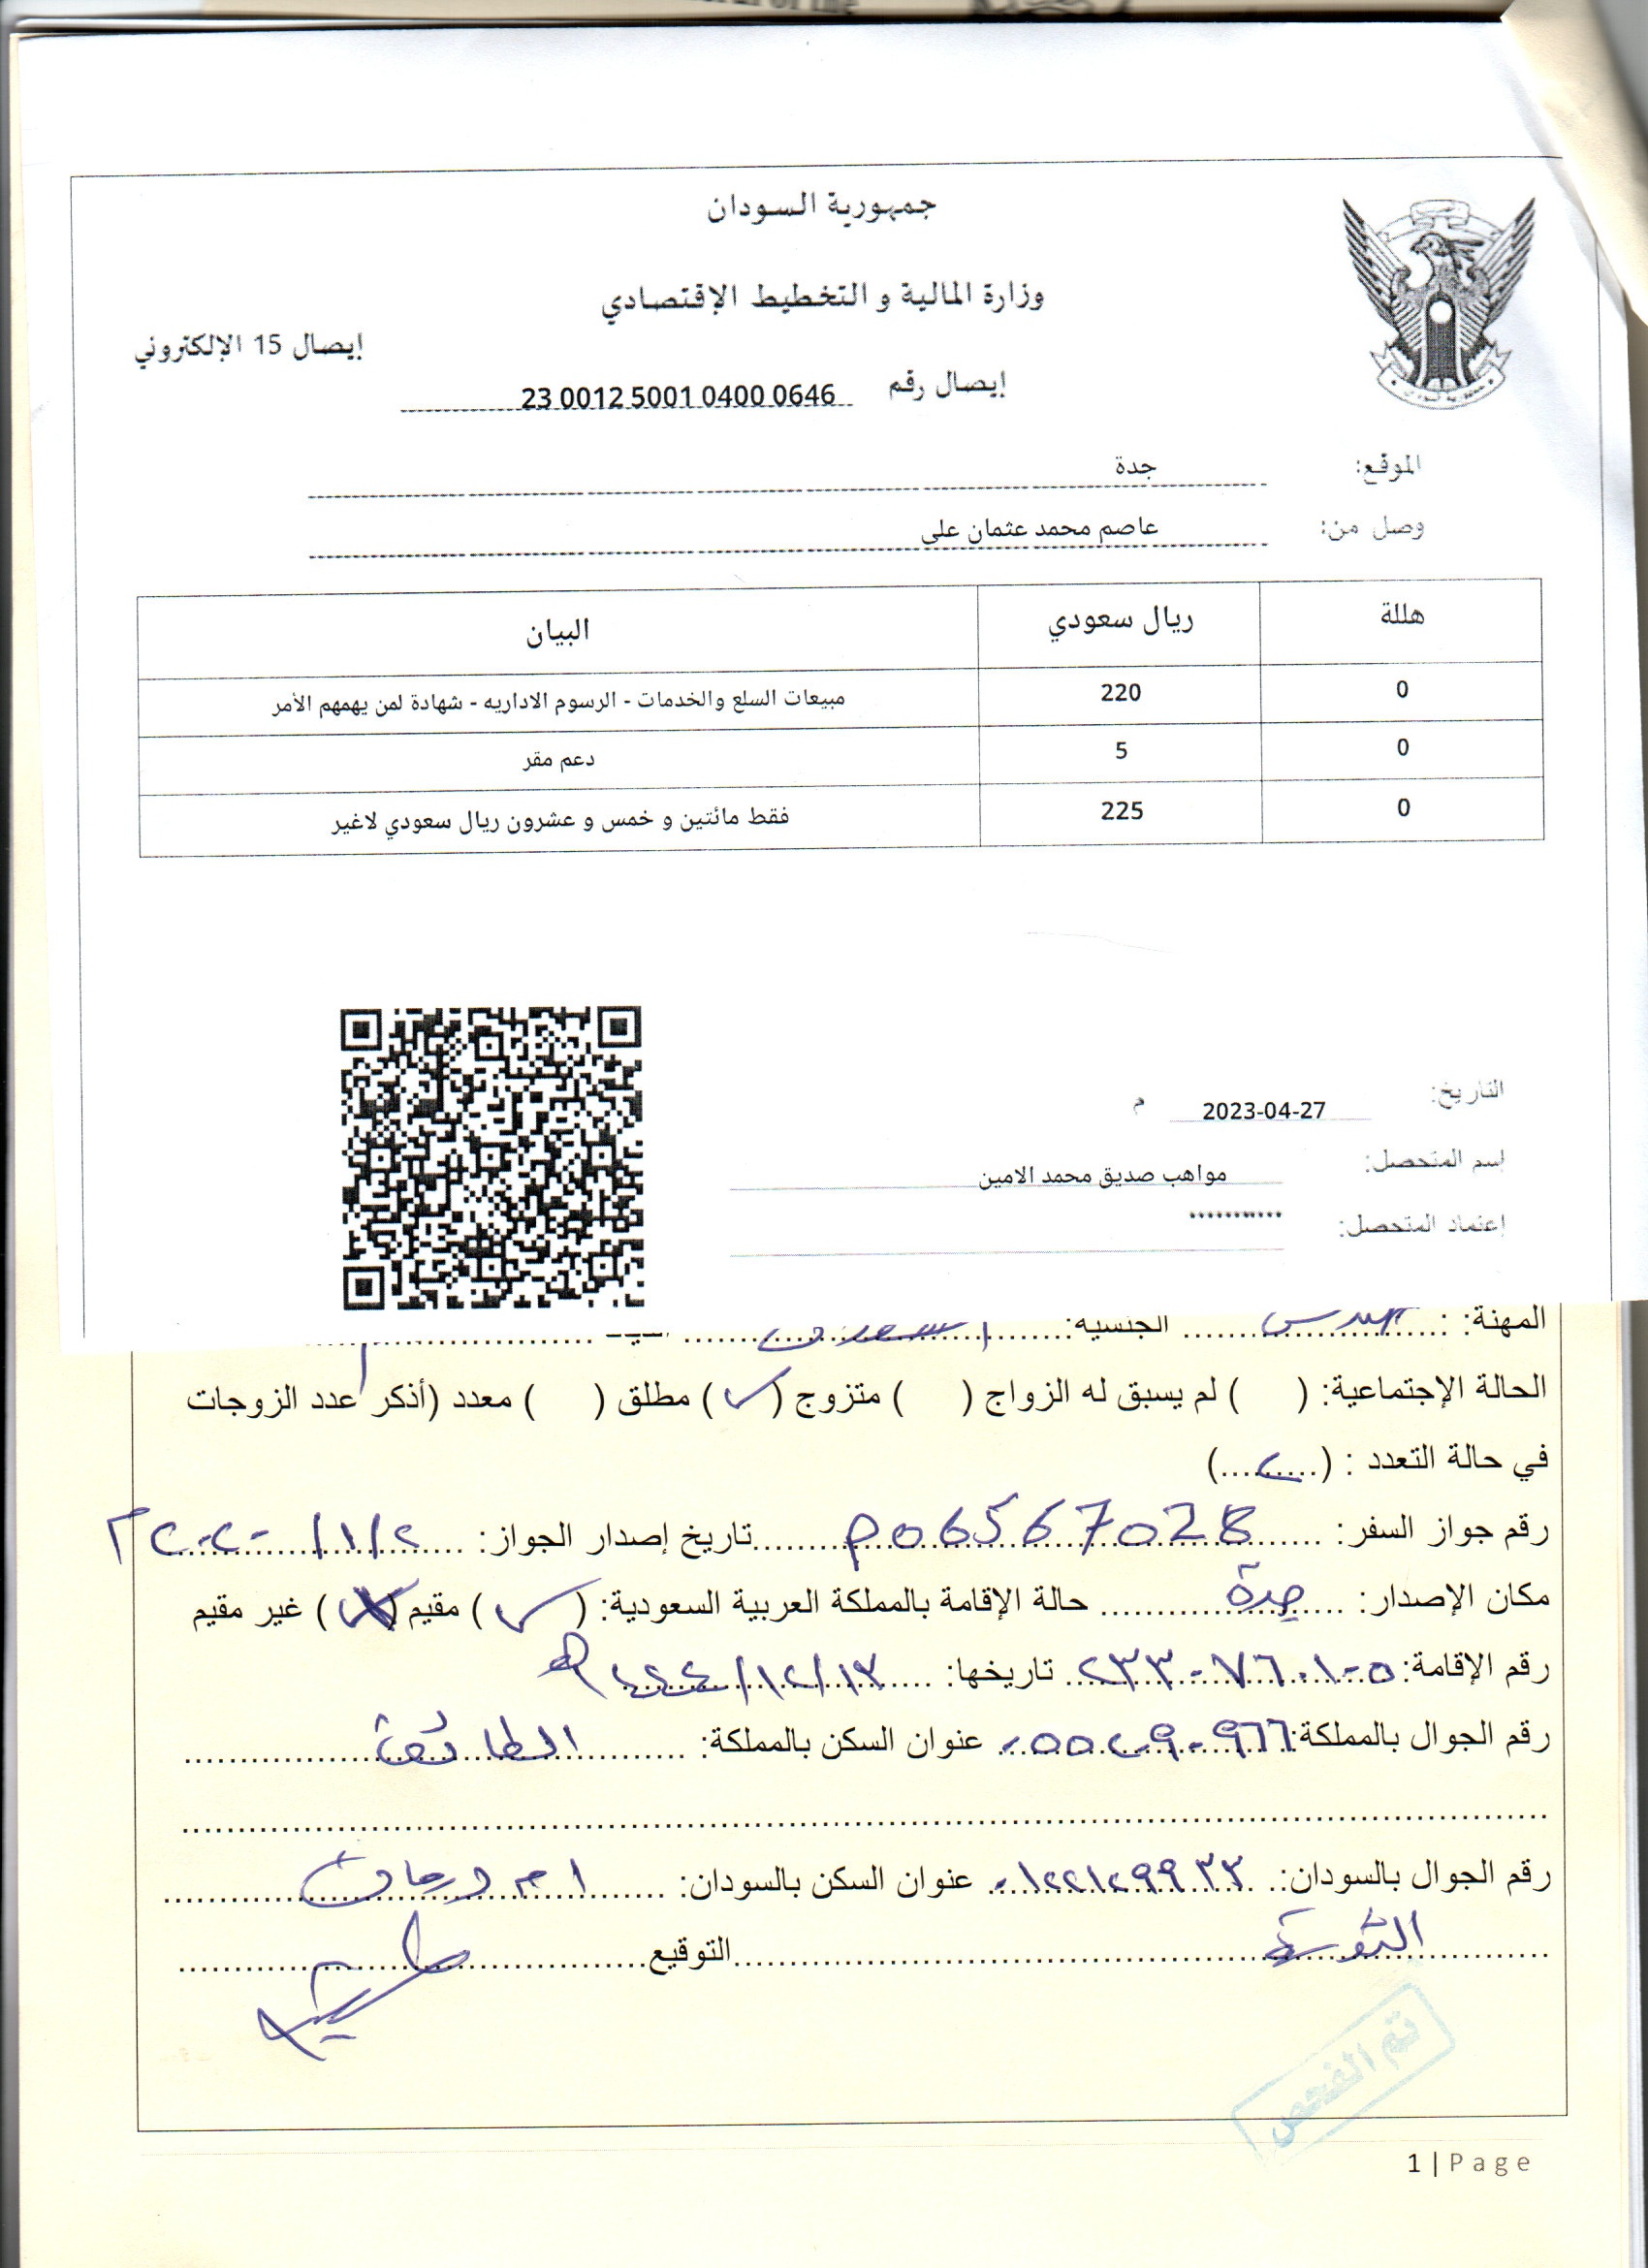 جمهورية السودان
وزارة المالية و التخطيط الإقتصادي
إيصال 15 الإلكتروني
إيصال رقم 23 0012 5001 0400 0646
الموقع: جدة
وصل من: عاصم محمد عثمان على
هللة ريال سعودي البيان
0 220 مبيعات السلع والخدمات - الرسوم الاداريه - شهادة لمن يهمهم الأمر
0 5 دعم مقر
0 225 فقط مائتين و خمس و عشرون ريال سعودي لاغير
التاريخ: 2023-04-27 م
إسم المتحصل: مواهب صديق محمد الامين
إعتماد المتحصل: **********
المهنة: الجنسيه:
الحالة الإجتماعية: ( ) لم يسبق له الزواج ( ) متزوج (✓) مطلق ( ) معدد (أذكر عدد الزوجات
في حالة التعدد : (..........)
رقم جواز السفر: P06567028 تاريخ إصدار الجواز: ٢/١/٢٠٢٠م
مكان الإصدار: جدة حالة الإقامة بالمملكة العربية السعودية: (✓) مقيم ( ) غير مقيم
رقم الإقامة: ٢٣٣٠٧٦٠١٠٥ تاريخها: ١٣/١٢/٤٤٤ هـ
رقم الجوال بالمملكة: ٠٥٥٢٠٩٠٩٦٦ عنوان السكن بالمملكة: الطائف
رقم الجوال بالسودان: ٠١٢٢١٢٩٩٣٣ عنوان السكن بالسودان: ام درمان
الثورة التوقيع
تم الفحص
1 | Page